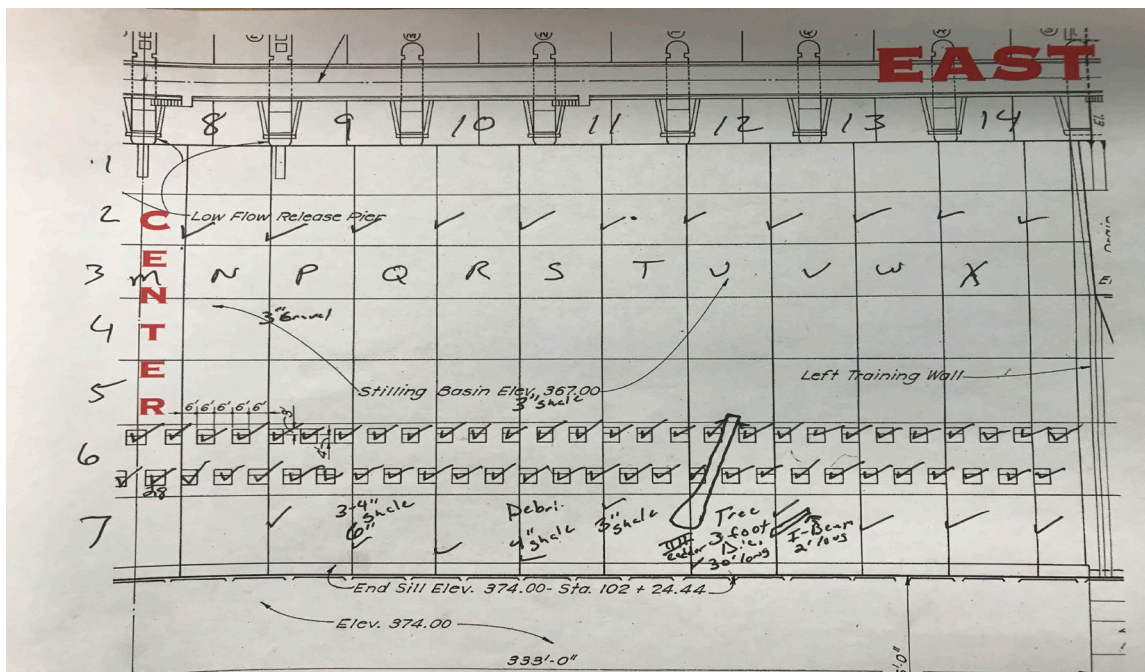 EAST
8 9 10 11 12 13 14
1
2
Low Flow Release Pier
CENTER
3 M N P Q R S T U V W X
3" Gravel
4
5
Stilling Basin Elev. 367.00
3" shale
Left Training Wall
6' 6' 6' 6' 6'
3'
4'
6
28
7
3-4" shale
6"
Debri.
4" shale
3" shale
Tree
3 foot
Dia.
30' long
I-Beam
2' long
End Sill Elev. 374.00 - Sta. 102 + 24.44
Elev. 374.00
333'-0"